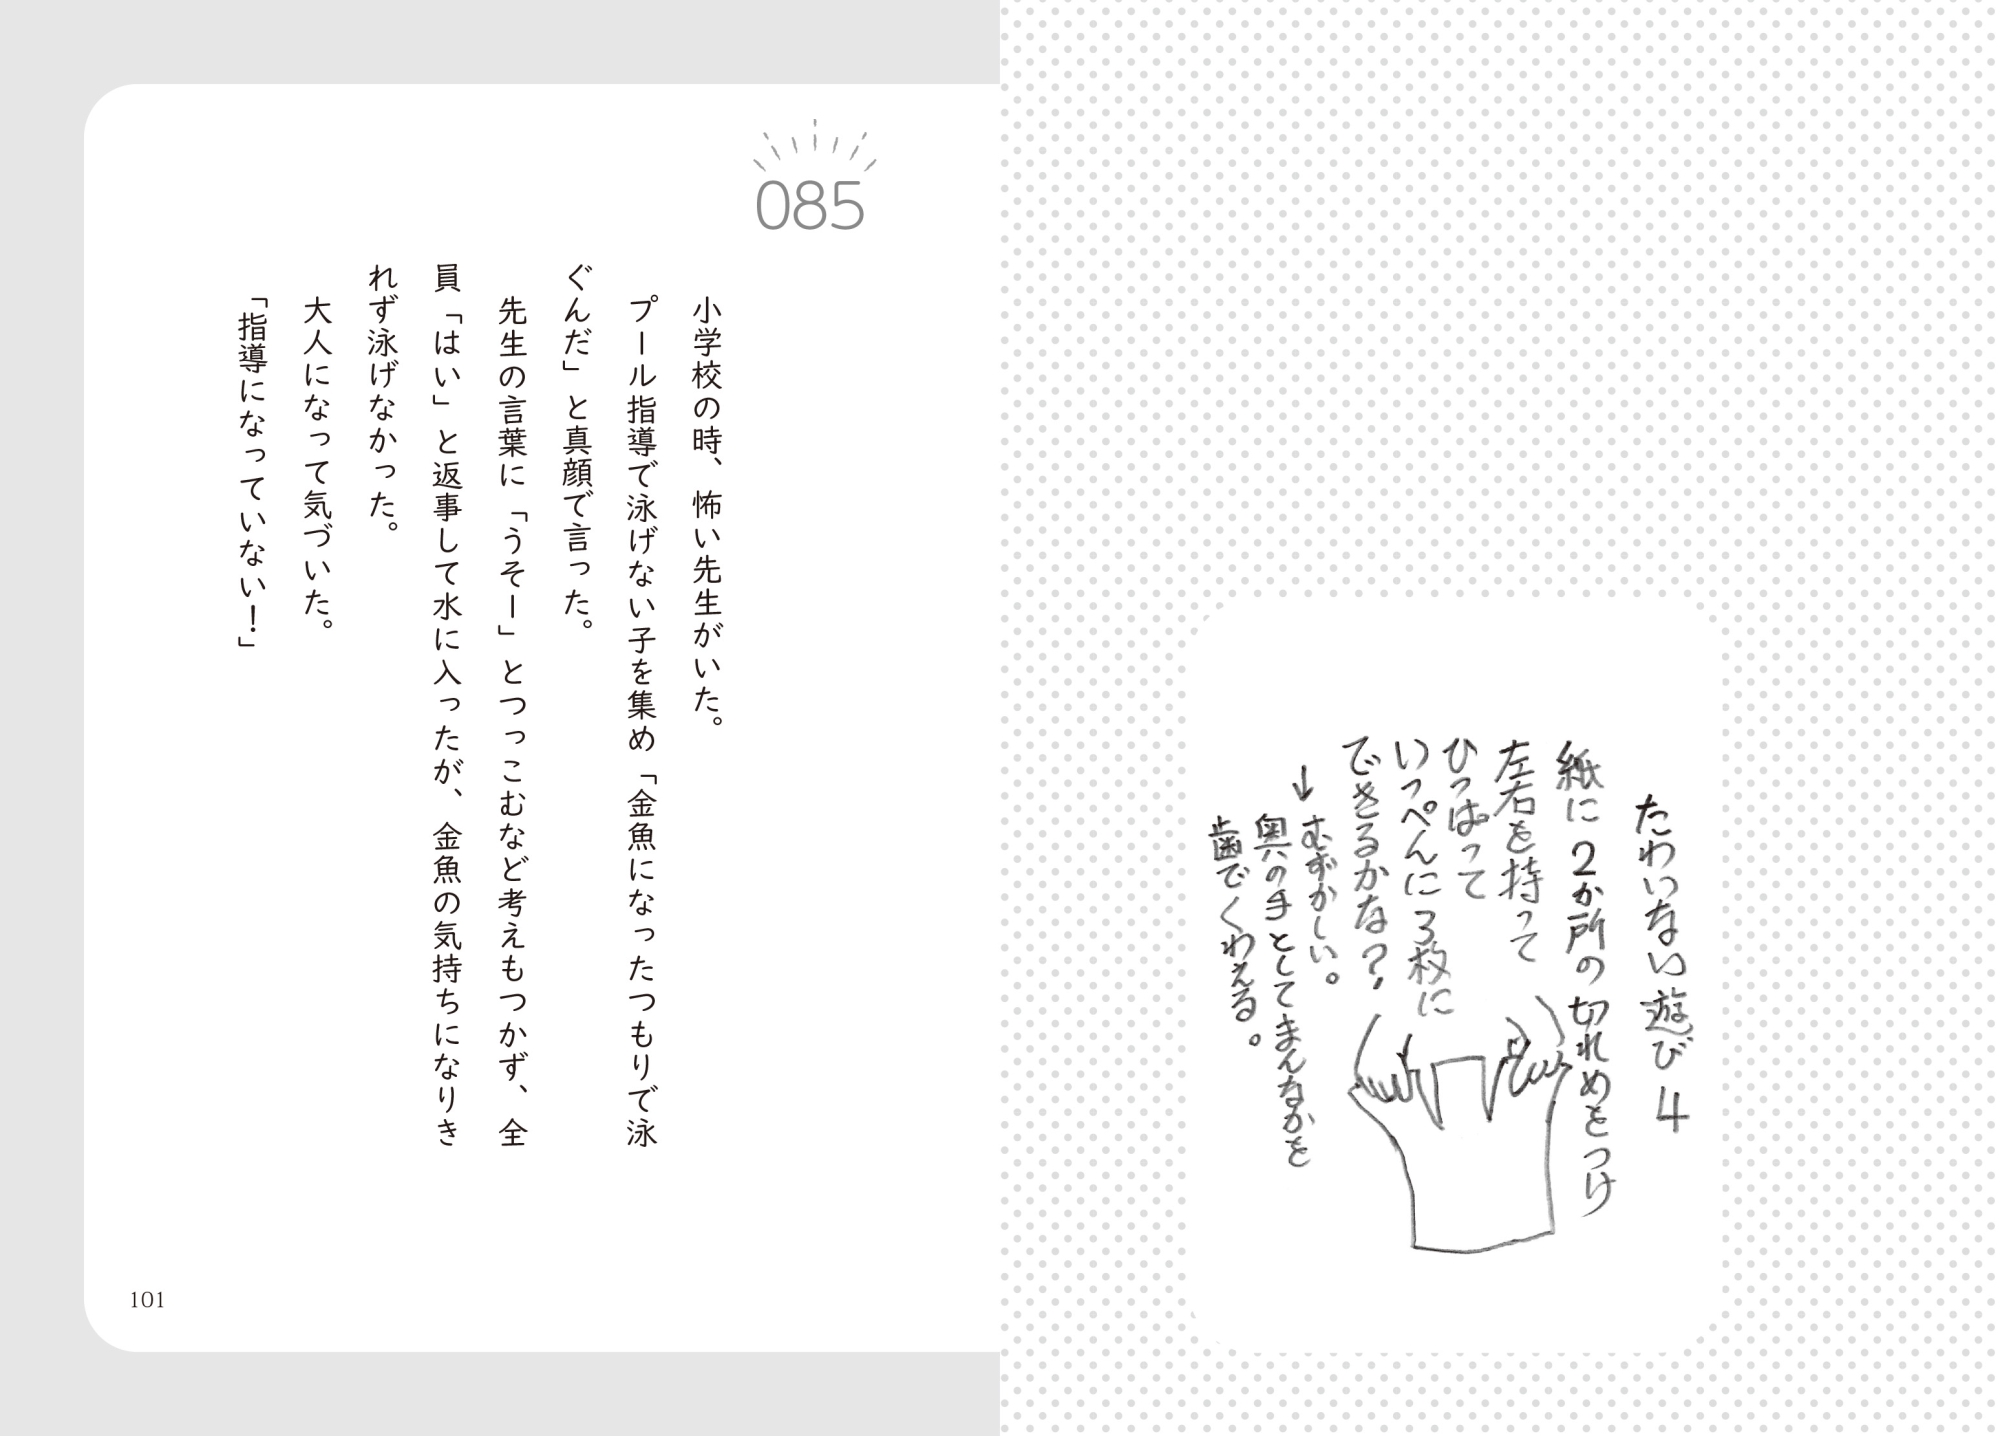 たわいない遊び 4
紙に2か所の切れめをつけ
左右を持って
ひっぱって
いっぺんに3枚に
できるかな?
↓むずかしい。
奥の手としてまんなかを
歯でくわえる。
085
小学校の時、怖い先生がいた。
プール指導で泳げない子を集め「金魚になったつもりで泳
ぐんだ」と真顔で言った。
先生の言葉に「うそー」とつっこむなど考えもつかず、全
員「はい」と返事して水に入ったが、金魚の気持ちになりき
れず泳げなかった。
大人になって気づいた。
「指導になっていない!」
101